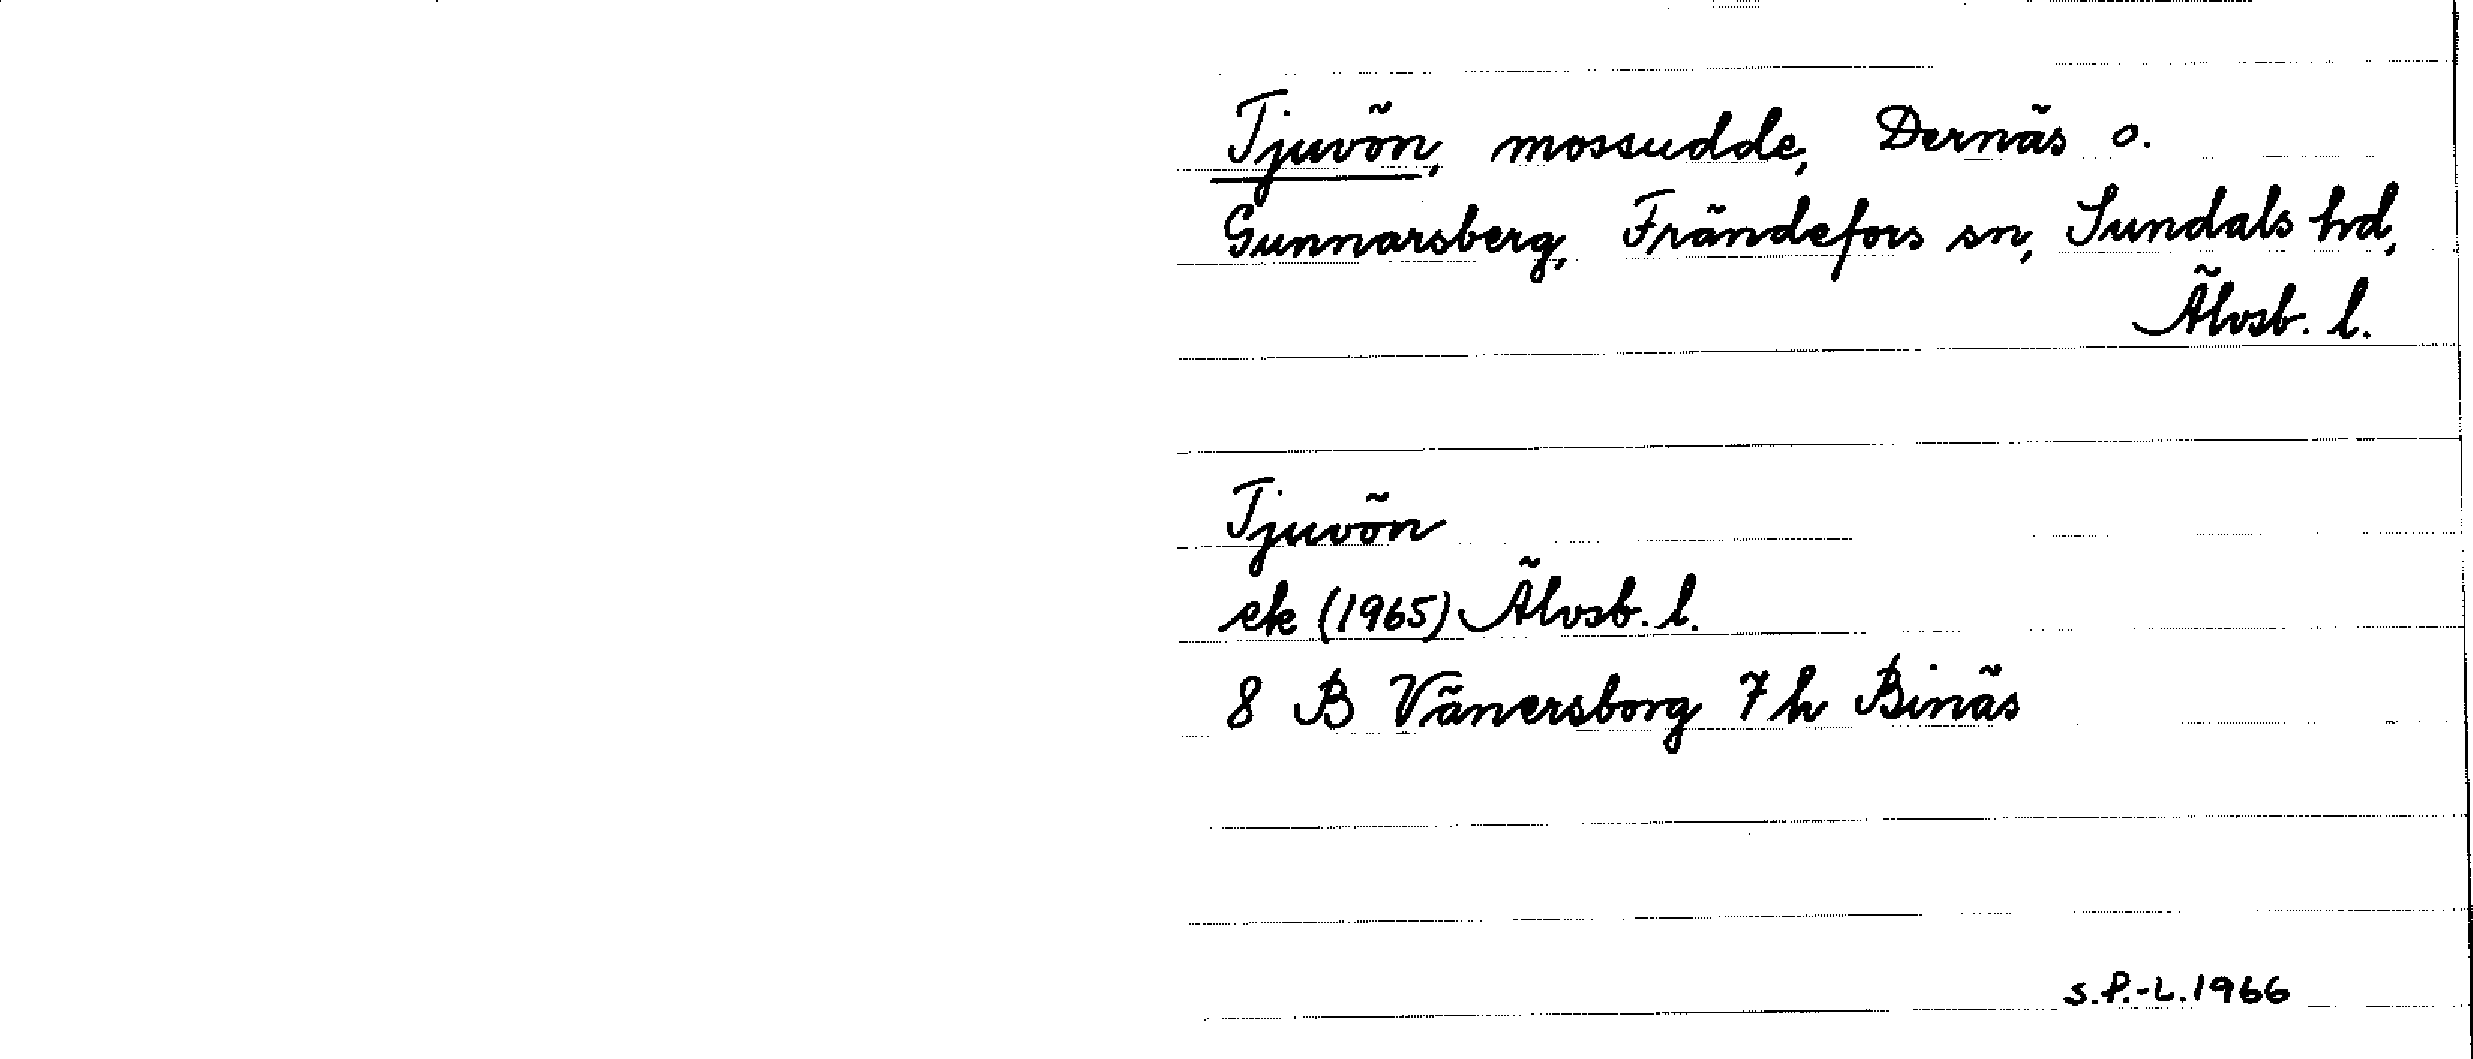 Tjuvön, mossudde, Dernäs o.
Gunnarsberg, Frändefors sn, Sundals hd,
Älvsb. l.
Tjuvön
ek (1965) Älvsb. l.
8 B Vänersborg 7 h Binäs
S.P.-L.1966